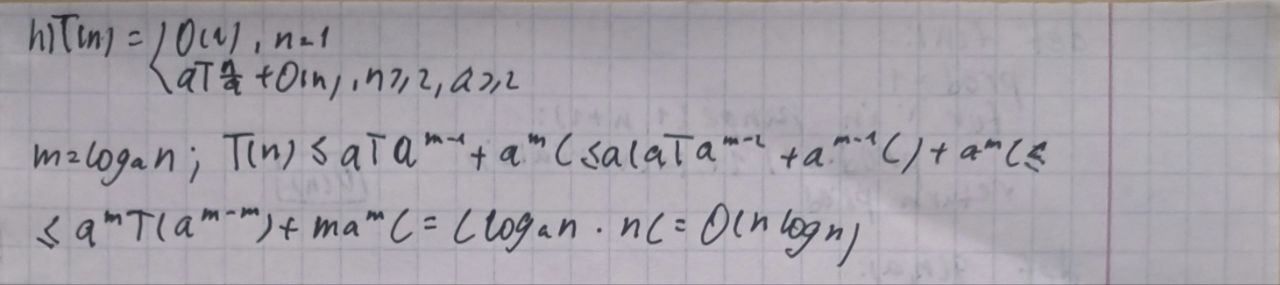 h) T(n) = { O(1), n=1
aT n/a + O(n), n≥2, a≥2
m=log_a n; T(n) ≤ aT a^{m-1} + a^m C ≤ a(aT a^{m-2} + a^{m-1} C) + a^m C ≤
≤ a^m T(a^{m-m}) + m a^m C = C log_a n · nC = O(n log n)